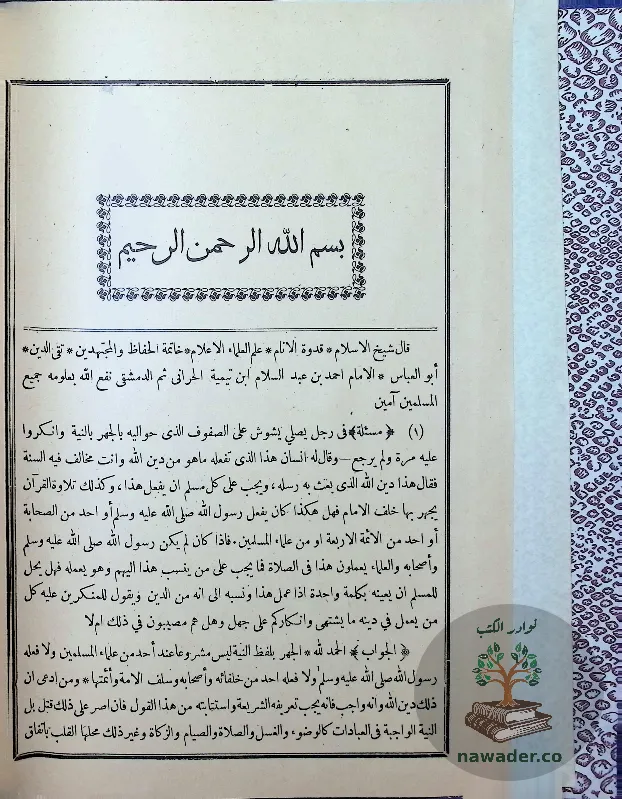 بسم الله الرحمن الرحيم
قال شيخ الاسلام * قدوة الانام * علم العلماء الاعلام * خاتمة الحفاظ والمجتهدين * تقى الدين *
أبو العباس * الامام احمد بن عبد السلام ابن تيمية الحرانى ثم الدمشقى نفع الله بعلومه جميع
المسلمين آمين
(١) ﴿ مسئلة ﴾ فى رجل يصلي يشوش على الصفوف الذى حواليه بالجهر بالنية وانكروا
عليه مرة ولم يرجع — وقال له انسان هذا الذى تفعله ما هو من دين الله وانت مخالف فيه السنة
فقال هذا دين الله الذى بعث به رسله ، ويجب على كل مسلم ان يفعل هذا ، وكذلك تلاوة القرآن
يجهر بها خلف الامام فهل هكذا كان يفعل رسول الله صلى الله عليه وسلم أو احد من الصحابة
أو احد من الأئمة الاربعة او من علماء المسلمين . فاذا كان لم يكن رسول الله صلى الله عليه وسلم
وأصحابه والعلماء يعملون هذا فى الصلاة فما يجب على من ينسب هذا اليهم وهو يعمله فهل يحل
للمسلم ان يعينه بكلمة واحدة اذا عمل هذا ونسبه الى انه من الدين ويقول للمنكرين عليه كل
من يعمل في دينه ما يشتهى وانكاركم على جهل وهل هم مصيبون في ذلك ام لا
﴿ الجواب ﴾ الحمد لله * الجهر بلفظ النية ليس مشروعا عند أحد من علماء المسلمين ولا فعله
رسول الله صلى الله عليه وسلم ولا فعله احد من خلفائه وأصحابه وسلف الامة وأئمتها * ومن ادعى ان
ذلك دين الله وانه واجب فانه يجب تعريفه الشريعة واستتابته من هذا القول فان اصر على ذلك قتل بل
النية الواجبة فى العبادات كالوضوء والغسل والصلاة والصيام والزكاة وغير ذلك محلها القلب باتفاق
نوادر الكتب
nawader.co